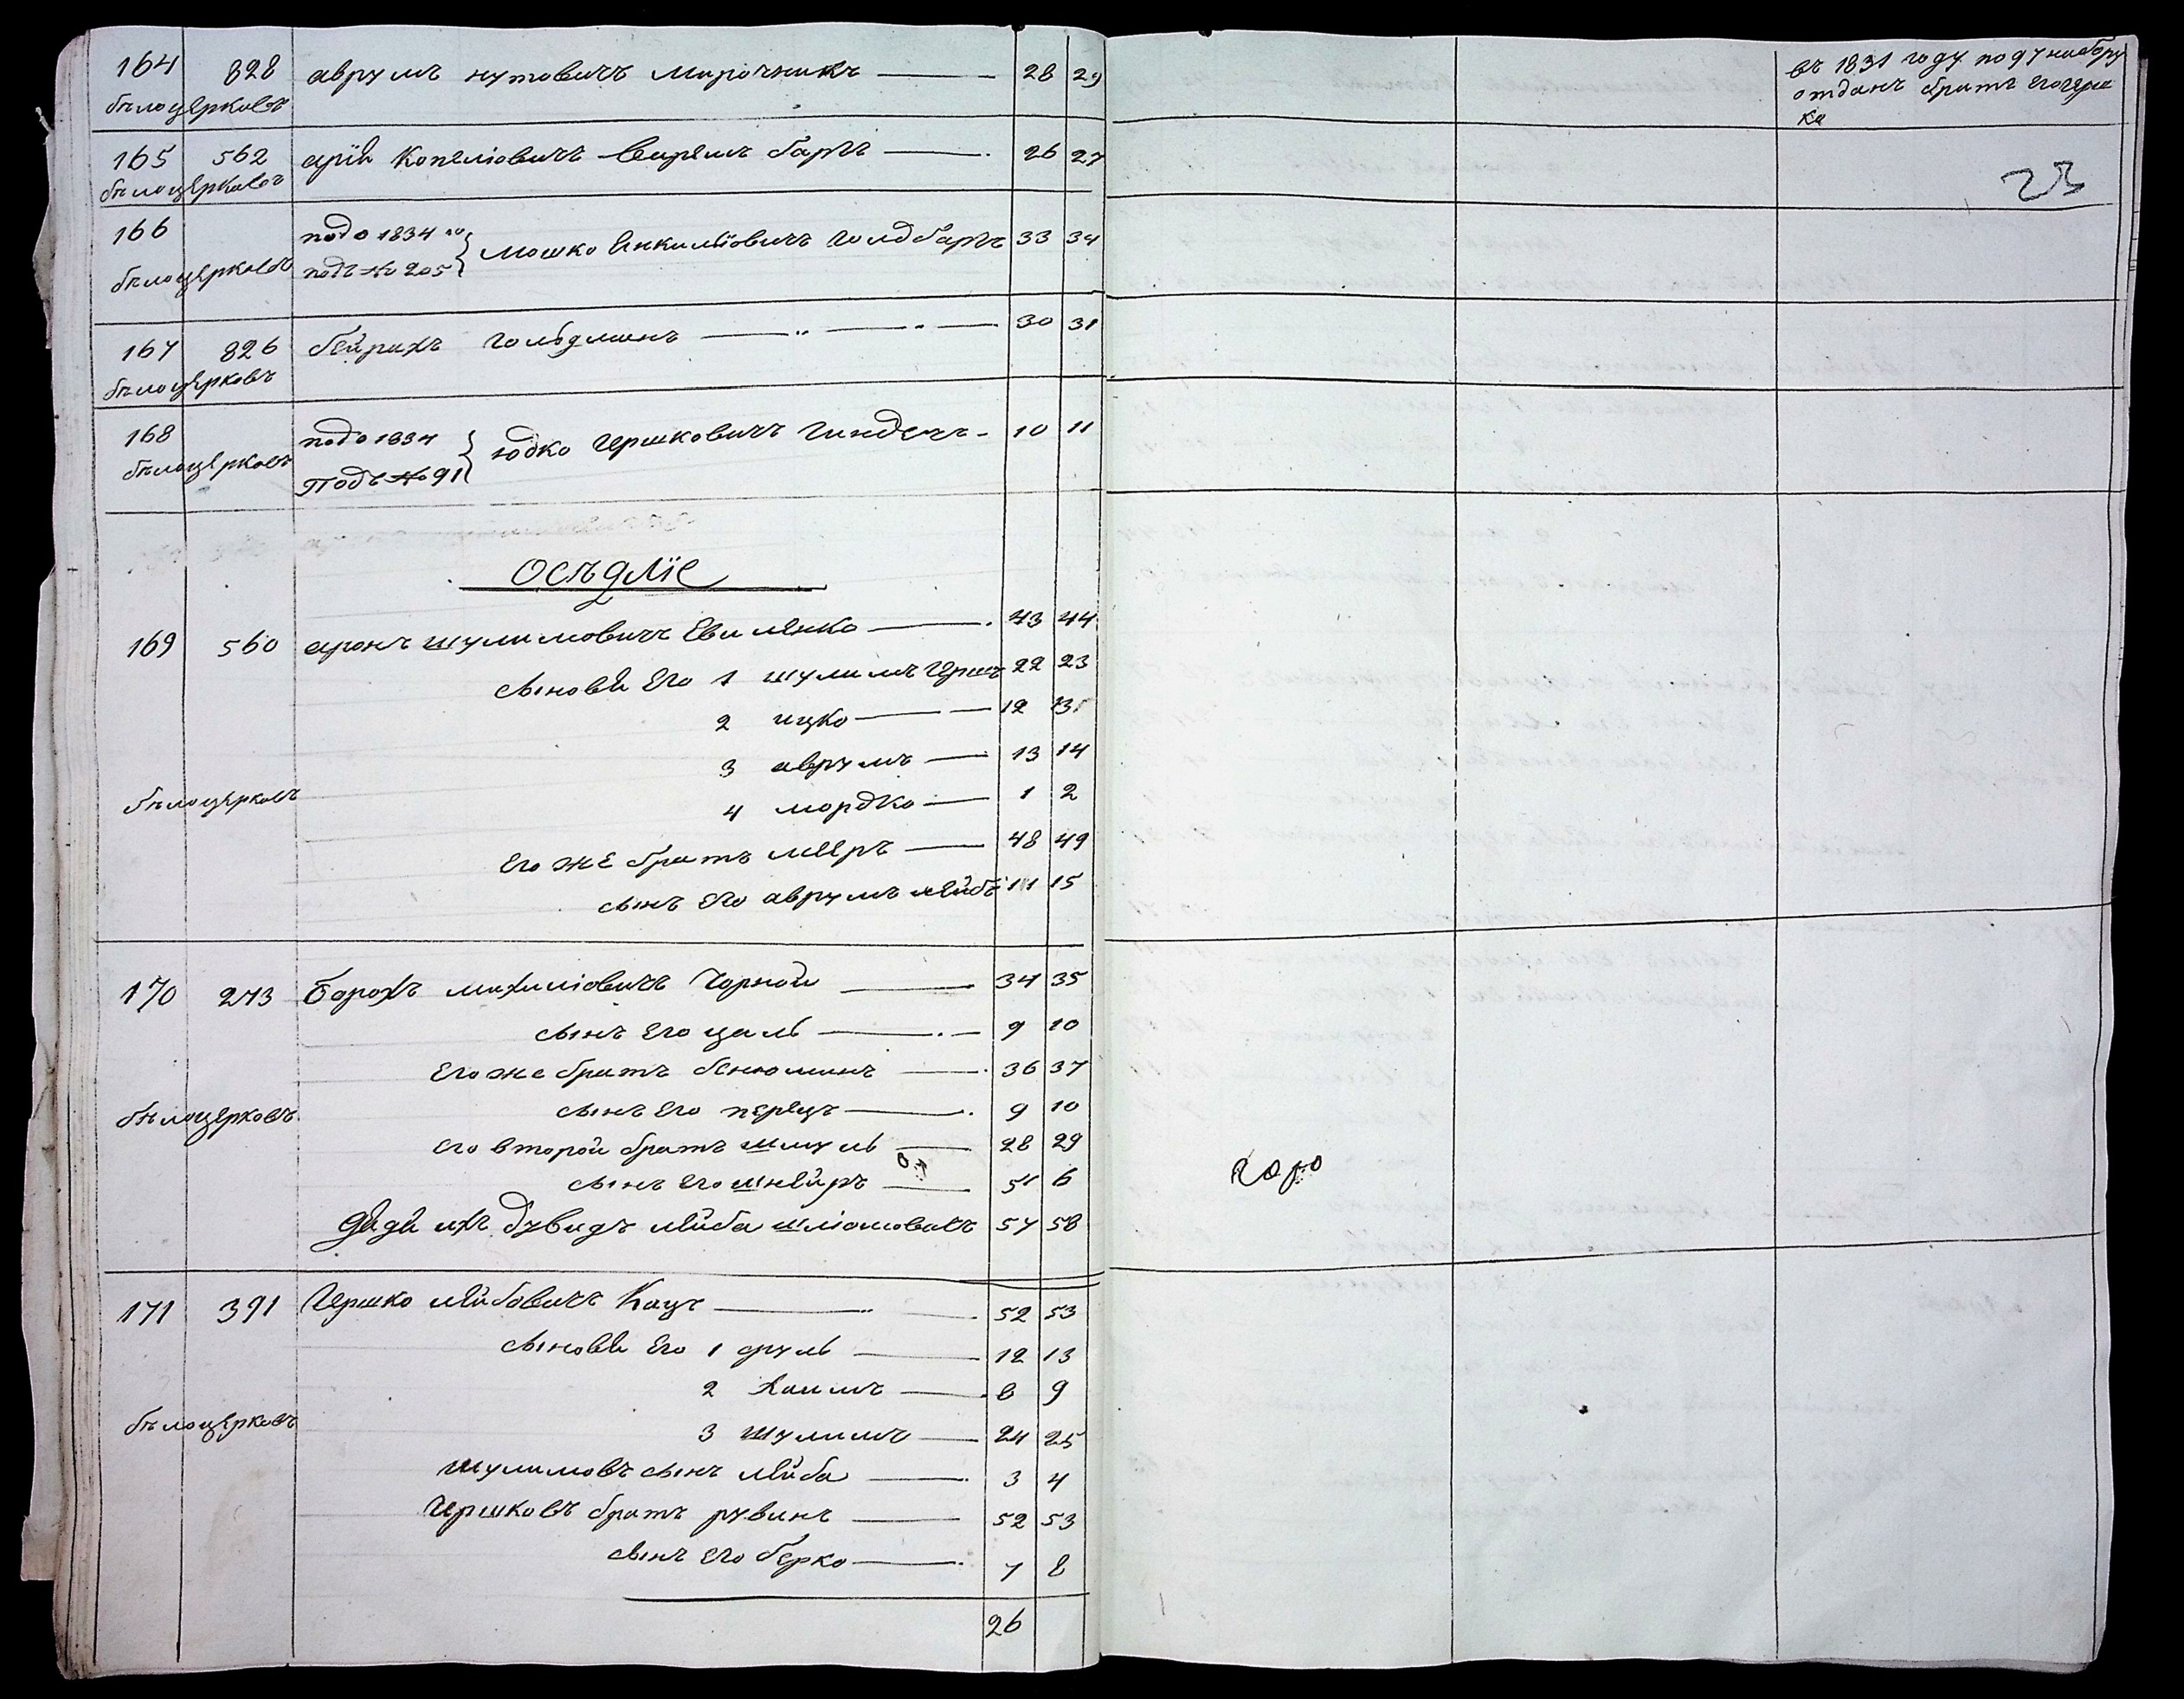 164 828 аврумъ нутовичъ мирочникъ 28 29
бѣлоцерковъ
въ 1831 году по 97 набору
отданъ братъ его герш
ко
165 562 арій Копеліовичъ 26 27
бѣлоцерковъ
23
166 подо 1834 го мошко Янкиліовичъ голдбаръ 33 34
бѣлоцерковъ подъ № 205
167 826 бейрахъ гольдманъ 30 31
бѣлоцерковъ
168 подо 1834 юдко гершковичъ 10 11
бѣлоцерковъ Подъ № 91
осѣдліе
169 560 аронъ шулимовичъ 43 44
сыновѣя его 1 шулимъ герш 22 23
2 ицко 12 13
3 аврумъ 13 14
бѣлоцерковъ
4 мордко 1 2
его же братъ мееръ 48 49
сынъ его аврумъ лейбъ 15
170 273 борохъ михиліовичъ Чорной 34 35
сынъ его цаль 9 10
его же братъ бенюминъ 36 37
бѣлоцерковъ сынъ его перецъ 9 10
его второй братъ шмуль 28 29
сынъ его шнейръ 5 6
дядя ихъ дувидъ лейба шліомовичъ 57 58
171 391 Гершко лейбовичъ Кацъ 52 53
сыновѣя его 1 сруль 12 13
2 хаимъ 8 9
бѣлоцерковъ
3 шулимъ 24 25
шулимовъ сынъ лейба 3 4
Гершковъ братъ рувинъ 52 53
сынъ его берко 7 8
26